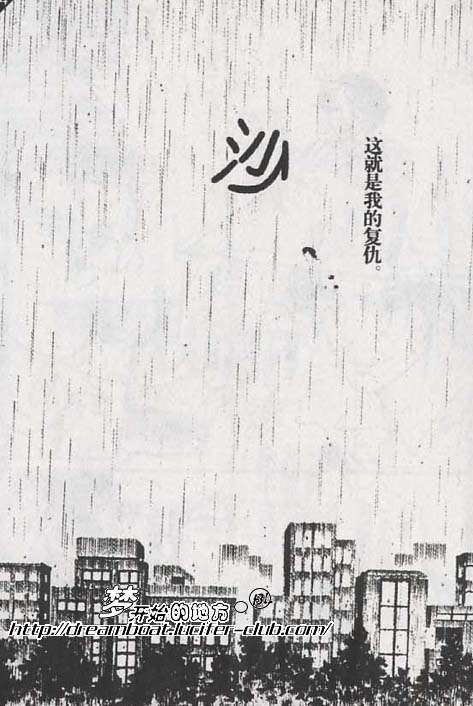 沙
这就是我的复仇。
梦开始的地方·
http://dreamboat.lucifer-club.com/